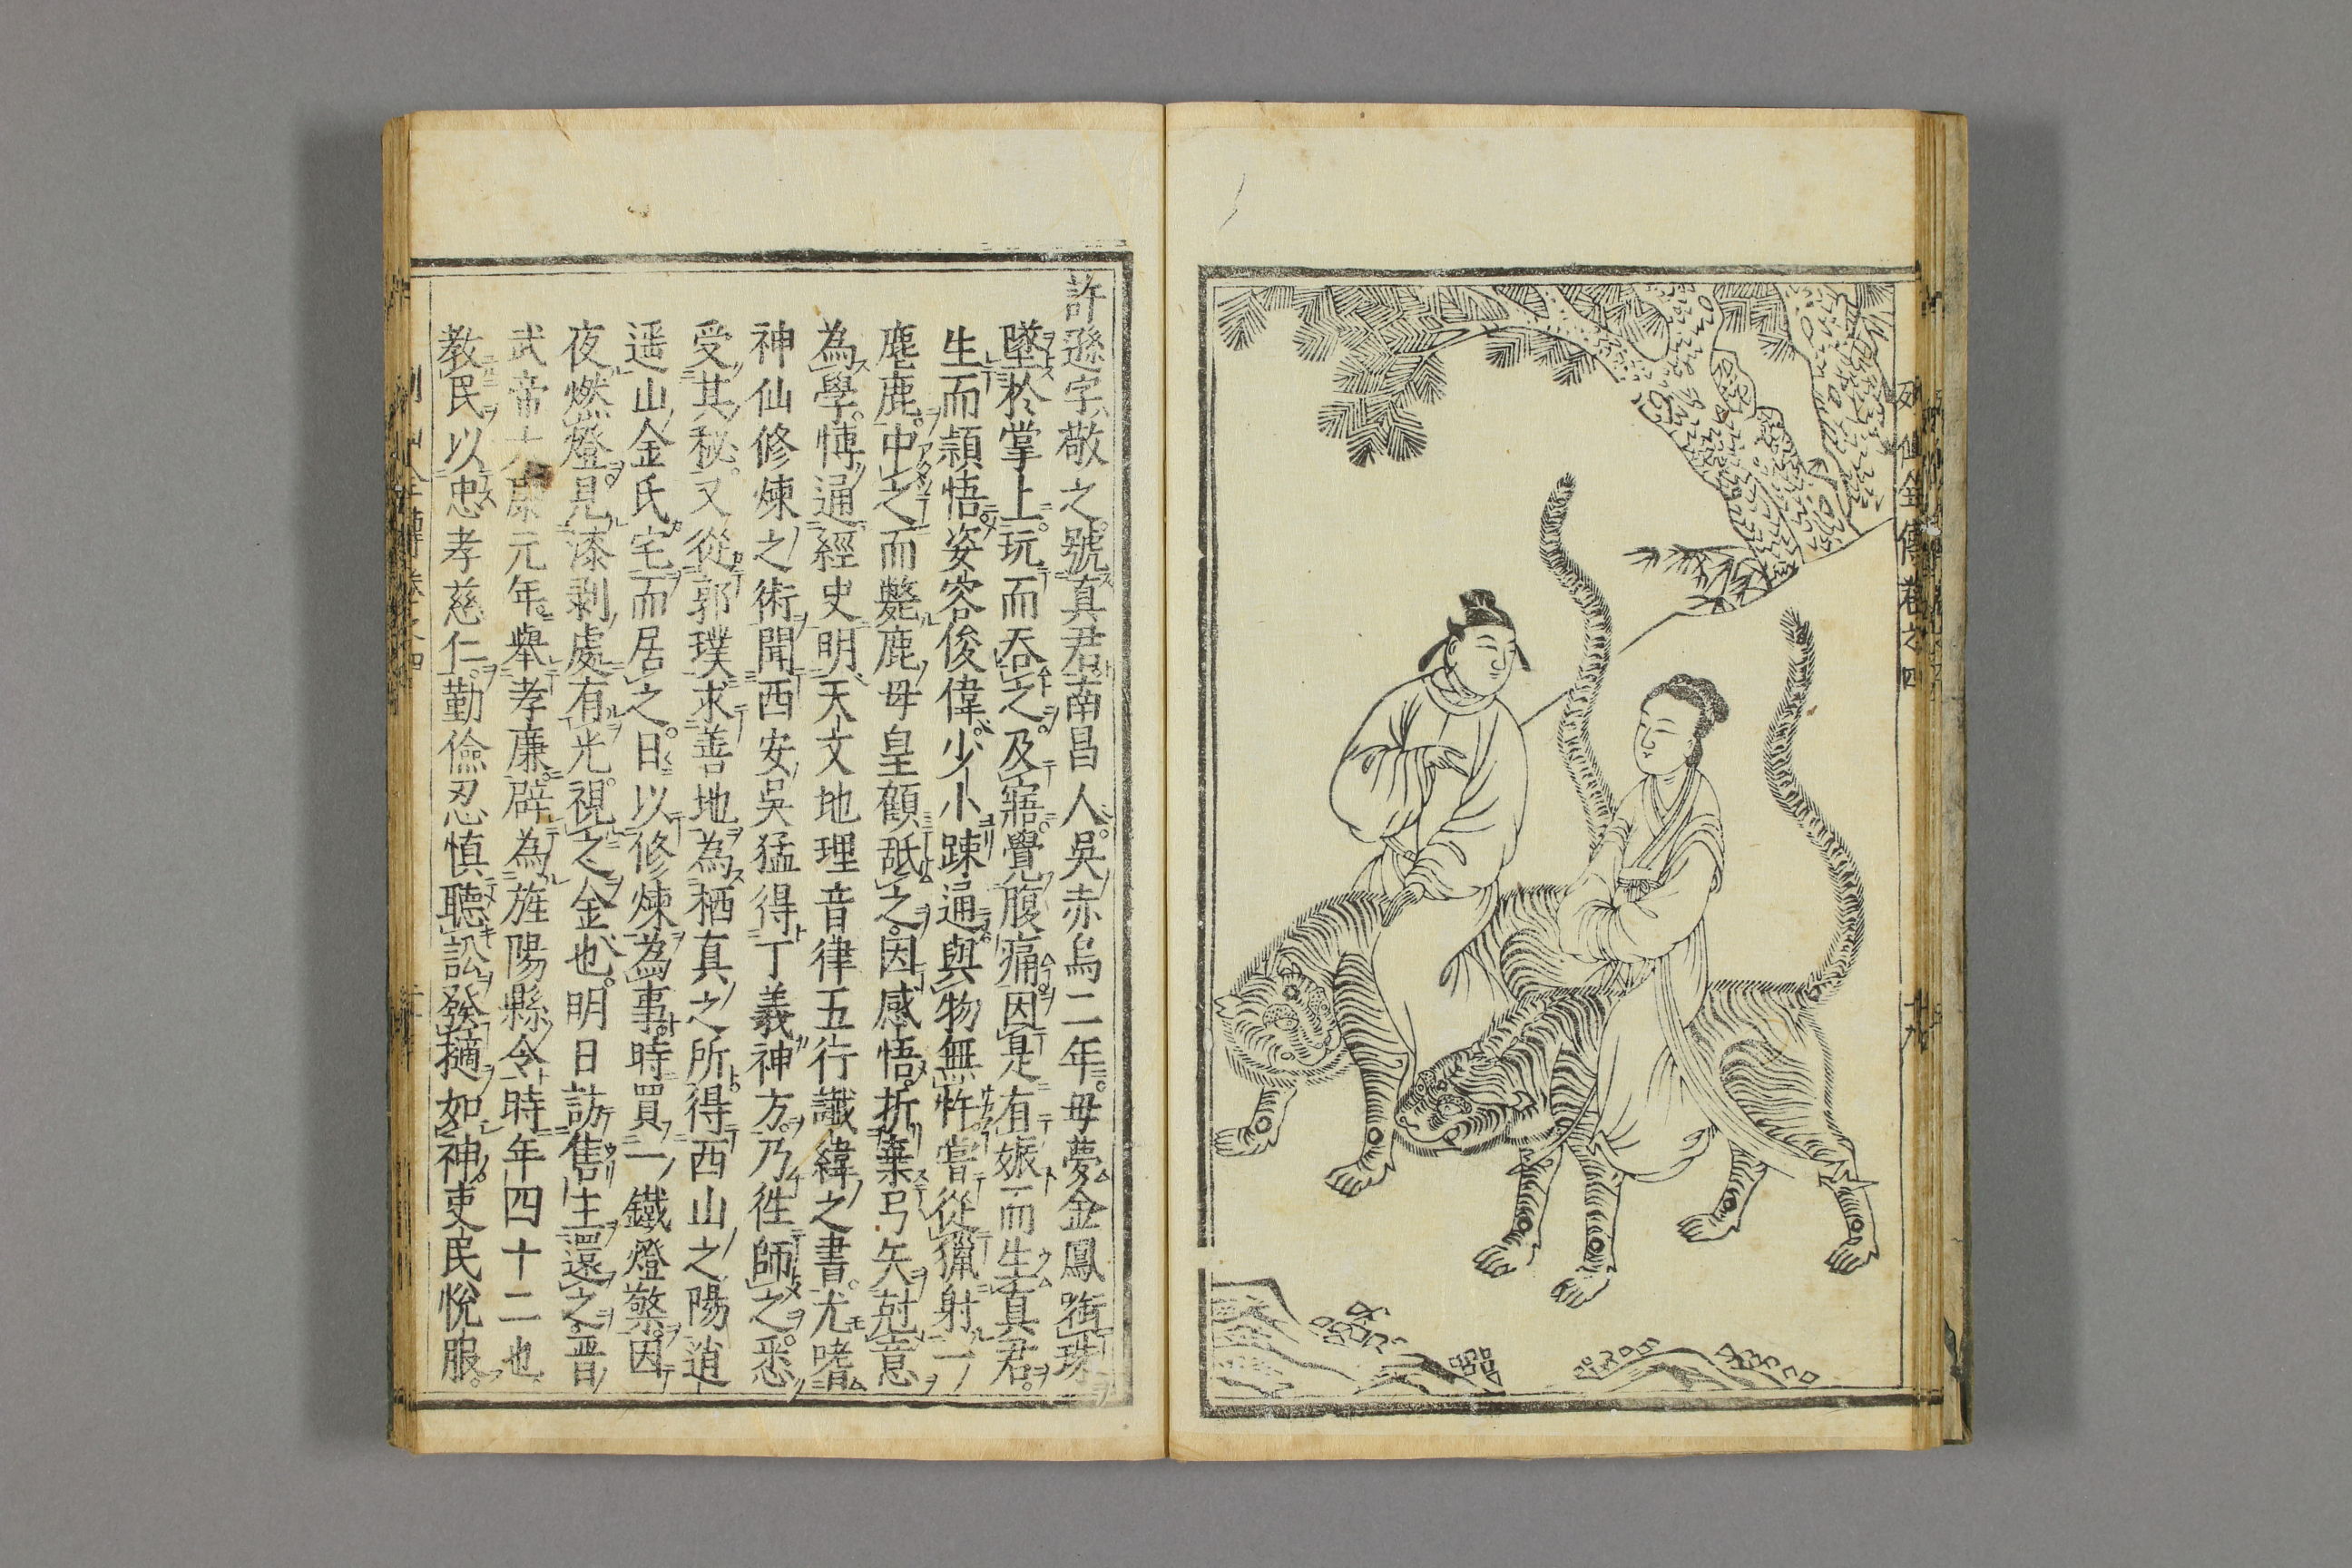 列仙全傳卷之四
十九
許遜字敬之號真君南昌人吳赤烏二年母夢金鳳銜珠
墜於掌上玩而吞之及寤覺腹痛因是有娠而生真君
生而穎悟姿容俊偉少小踈通與物無忤嘗從獵射一
麀鹿中之而斃鹿母皇顧舐之因感悟折棄弓矢尅意
為學博通經史明天文地理音律五行讖緯之書尤嗜
神仙修煉之術聞西安吳猛得丁義神方乃徃師之悉
受其秘又從郭璞求善地為栖真之所得西山之陽逍
遥山金氏宅而居之日以修煉為事時買一鐵燈檠因
夜燃燈見漆剥處有光視之金也明日訪售主還之晋
武帝太康元年舉孝廉辟為旌陽縣令時年四十二也
教民以忠孝慈仁勤儉忍慎聽訟發擿如神吏民悅服